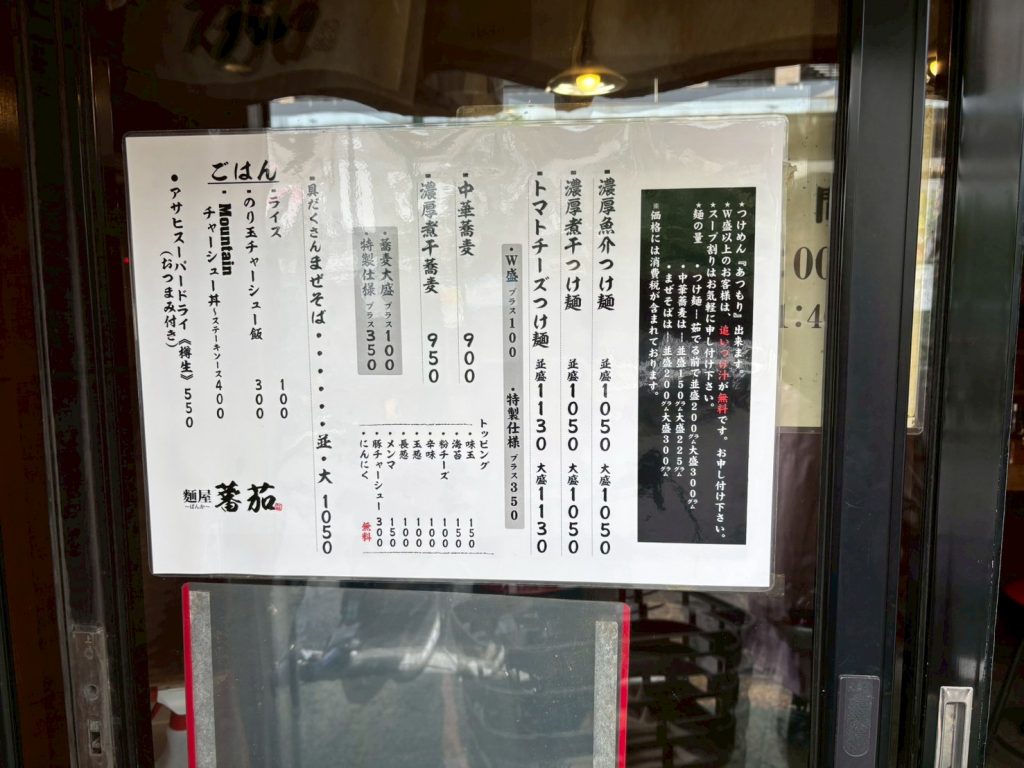 ★つけめん『あつもり』出来ます。
★W盛以上のお客様は、追いつけ汁が無料です。お申し付け下さい。
★スープ割りはお気軽に申し付け下さい。
★麺の量 ・つけ麺―茹でる前で並盛200グラム大盛300グラム
・中華蕎麦は―並盛150グラム大盛225グラム
・まぜそばは―並盛200グラム大盛300グラム
※価格には消費税が含まれております。
・濃厚魚介つけ麺 並盛1050 大盛1050
・濃厚煮干つけ麺 並盛1050 大盛1050
・トマトチーズつけ麺 並盛1130 大盛1130
・W盛 プラス100 ・特製仕様 プラス350
・中華蕎麦 900
・濃厚煮干蕎麦 950
・蕎麦大盛 プラス100
・特製仕様 プラス350
トッピング
・味玉 150
・海苔 150
・粉チーズ 100
・辛味 100
・玉葱 100
・長葱 100
・メンマ 150
・豚チャーシュー 300
・にんにく 無料
・具だくさんまぜそば・・・・・・並・大 1050
ごはん
・ライス 100
・のり玉チャーシュー飯 300
・Mountain
チャーシュー丼～ステーキソース400
・アサヒスーパードライ《樽生》550
(おつまみ付き)
麺屋 蕃茄
～ばんか～